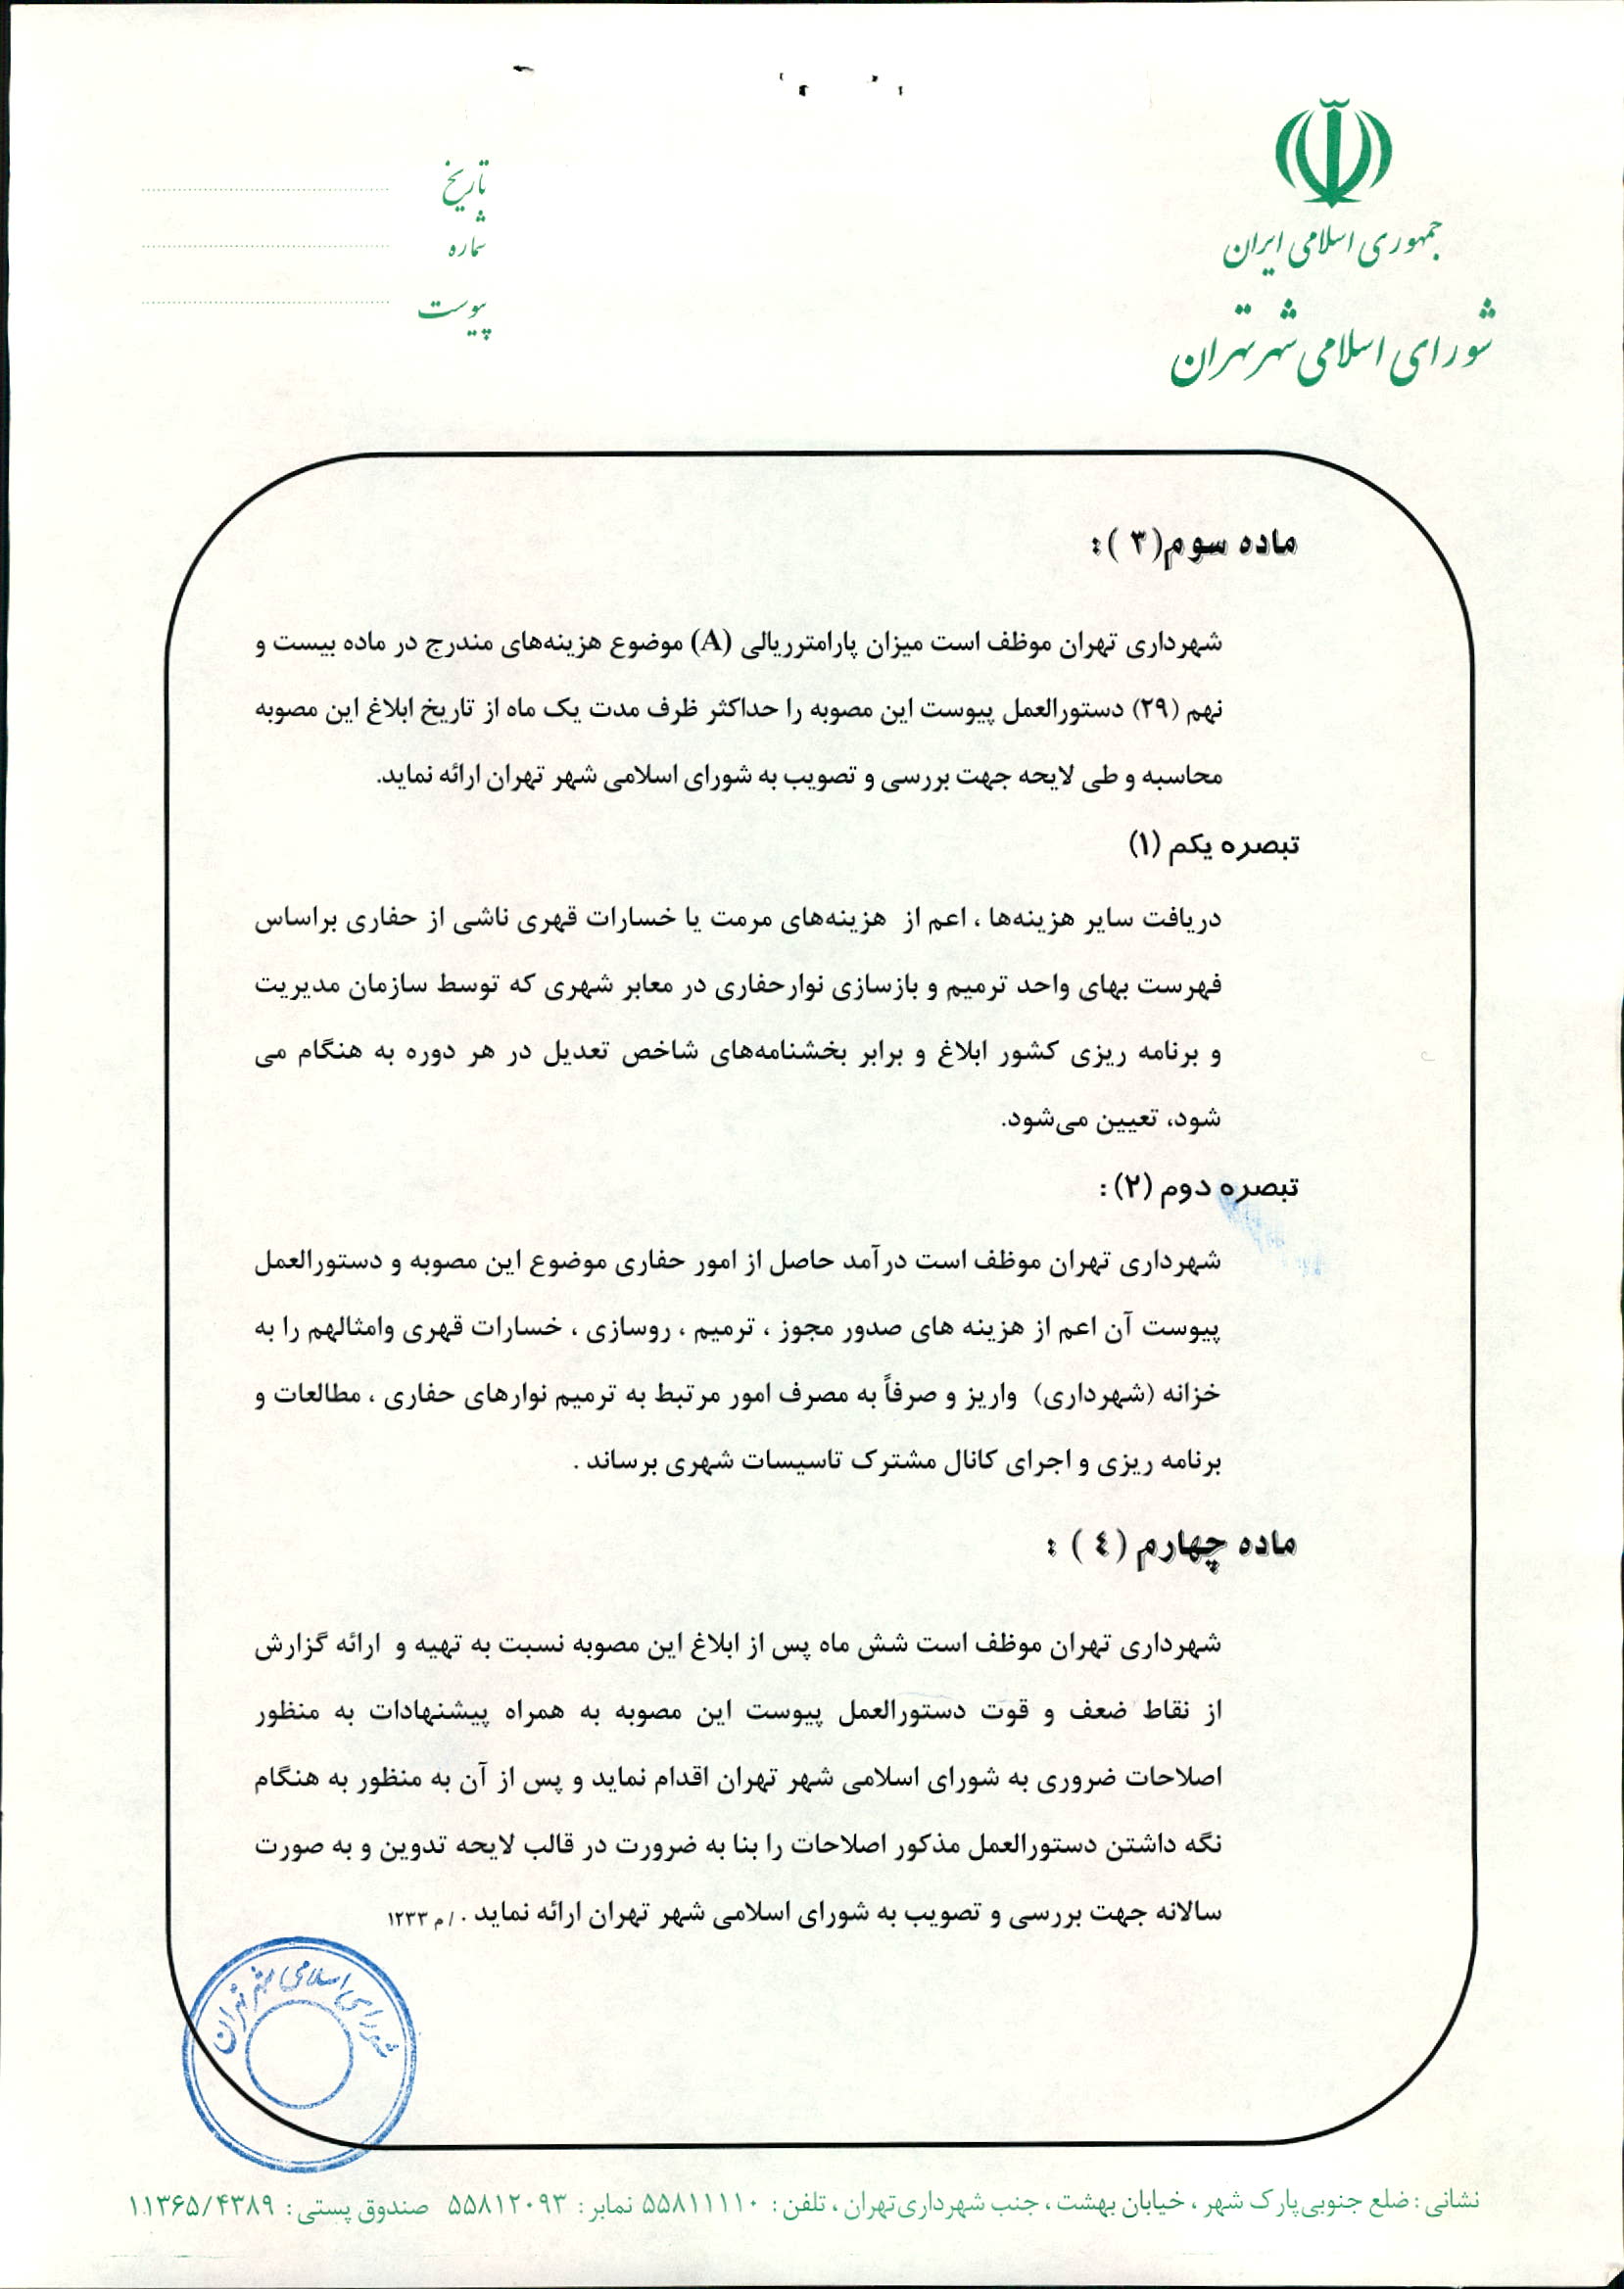 جمهوری اسلامی ایران
شورای اسلامی شهر تهران
تاریخ
شماره
پیوست
ماده سوم(۳):
شهرداری تهران موظف است میزان پارامترریالی (A) موضوع هزینه‌های مندرج در ماده بیست و
نهم (۲۹) دستورالعمل پیوست این مصوبه را حداکثر ظرف مدت یک ماه از تاریخ ابلاغ این مصوبه
محاسبه و طی لایحه جهت بررسی و تصویب به شورای اسلامی شهر تهران ارائه نماید.
تبصره یکم (۱)
دریافت سایر هزینه‌ها ، اعم از هزینه‌های مرمت یا خسارات قهری ناشی از حفاری براساس
فهرست بهای واحد ترمیم و بازسازی نوارحفاری در معابر شهری که توسط سازمان مدیریت
و برنامه ریزی کشور ابلاغ و برابر بخشنامه‌های شاخص تعدیل در هر دوره به هنگام می
شود، تعیین می‌شود.
تبصره دوم (۲) :
شهرداری تهران موظف است درآمد حاصل از امور حفاری موضوع این مصوبه و دستورالعمل
پیوست آن اعم از هزینه های صدور مجوز ، ترمیم ، روسازی ، خسارات قهری وامثالهم را به
خزانه (شهرداری) واریز و صرفاً به مصرف امور مرتبط به ترمیم نوارهای حفاری ، مطالعات و
برنامه ریزی و اجرای کانال مشترک تاسیسات شهری برساند .
ماده چهارم (٤) :
شهرداری تهران موظف است شش ماه پس از ابلاغ این مصوبه نسبت به تهیه و ارائه گزارش
از نقاط ضعف و قوت دستورالعمل پیوست این مصوبه به همراه پیشنهادات به منظور
اصلاحات ضروری به شورای اسلامی شهر تهران اقدام نماید و پس از آن به منظور به هنگام
نگه داشتن دستورالعمل مذکور اصلاحات را بنا به ضرورت در قالب لایحه تدوین و به صورت
سالانه جهت بررسی و تصویب به شورای اسلامی شهر تهران ارائه نماید ./م ۱۲۳۳
شورای اسلامی شهر تهران
نشانی : ضلع جنوبی‌پارک شهر ، خیابان بهشت ، جنب شهرداری‌تهران ، تلفن : ۵۵۸۱۱۱۱۰ نمابر : ۵۵۸۱۲۰۹۳ صندوق پستی : ۱۱۳۶۵/۴۳۸۹